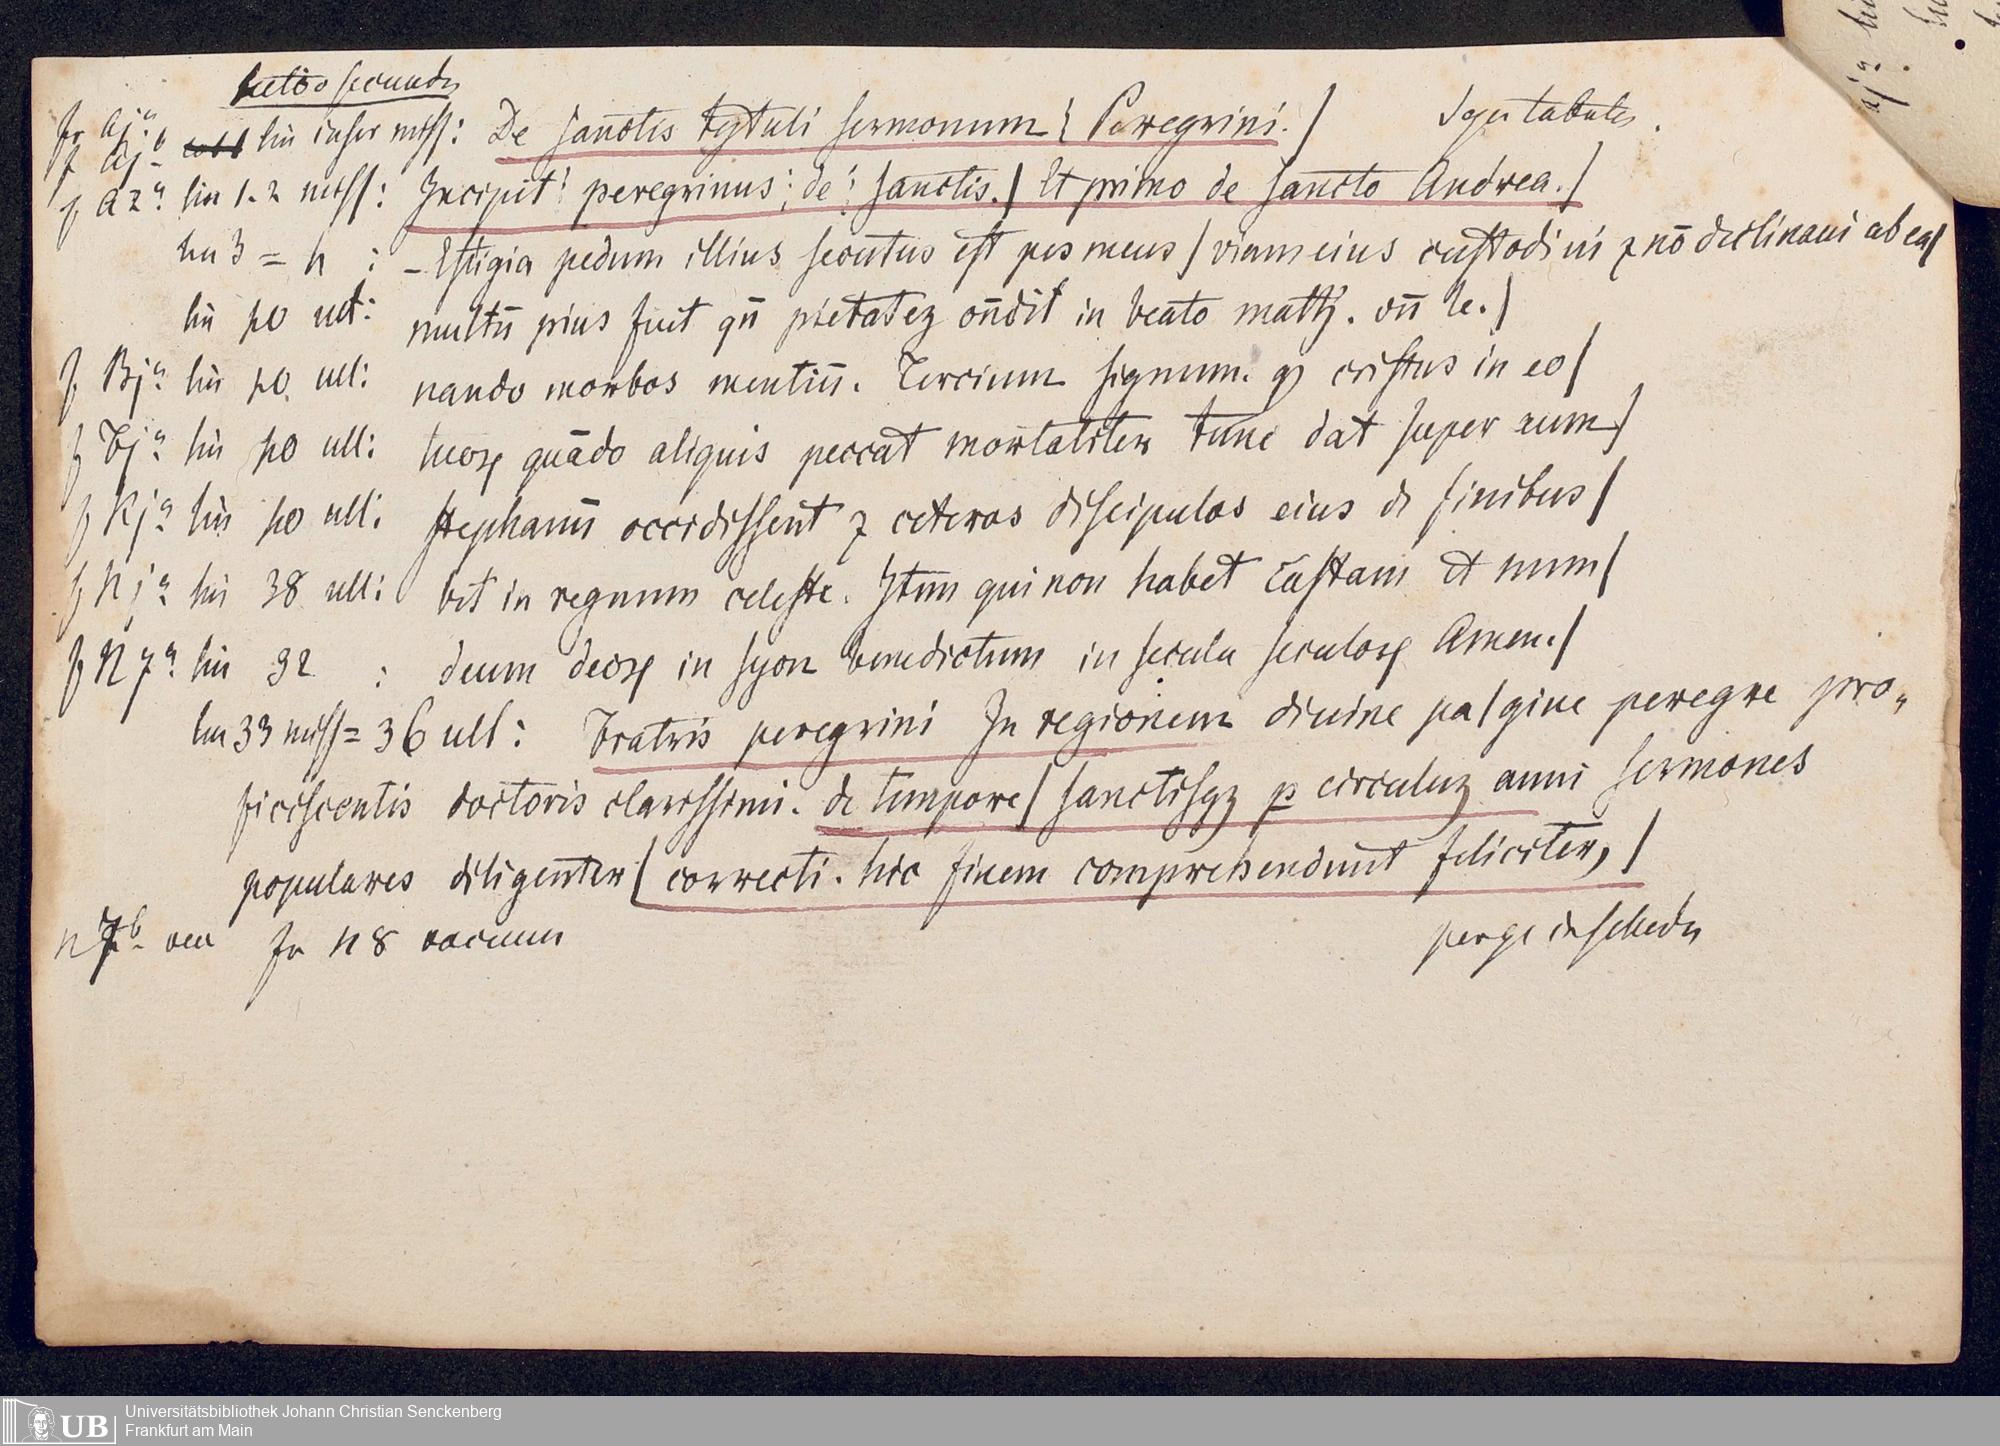 sectio secunda
fo aja.
f ajb lin infer miss: De sanctis tytuli sermonum { Peregrini. / Seqr tabula.
f a2a lin 1-2 miss: Incipit peregrinus: de: sanctis. / Et primo de sancto Andrea. /
lin 3 = h : - Estigia pedum illius secutus est pes meus / viam eius custodivi ꝛ nō declinaui ab ea /
lin po ult: multū pius fuit qn̄ pietatez on̄dit in beato matth. vn̄ le. /
f Bja lin po ult: nando morbos mentiū. Tercium signum. ꝙ cristus in eo /
f Cja lin po ult: tuoꝝ quādo aliquis peccat mortaliter tunc dat super eum /
f Kja lin po ult: stephanū occidissent ꝛ ceteros discipulos eius de finibus /
f Nja lin 38 ult: bit in regnum celeste. Item qui non habet castam et mun /
f N7a lin 32 : deum deoꝝ in syon benedictum in secula seculoꝝ Amen. /
lin 33 miss = 36 ult: Fratris peregrini In regionem diuine pa / gine peregre pro„
ficiscentis doctoris clarissimi. de tempore / sanctisqz ꝑ circuluz anni sermones
populares diligenter / correcti. hic finem comprehendunt feliciter, /
N7b. vac fo N 8 vacuum perge in scheda
Universitätsbibliothek Johann Christian Senckenberg
UB Frankfurt am Main